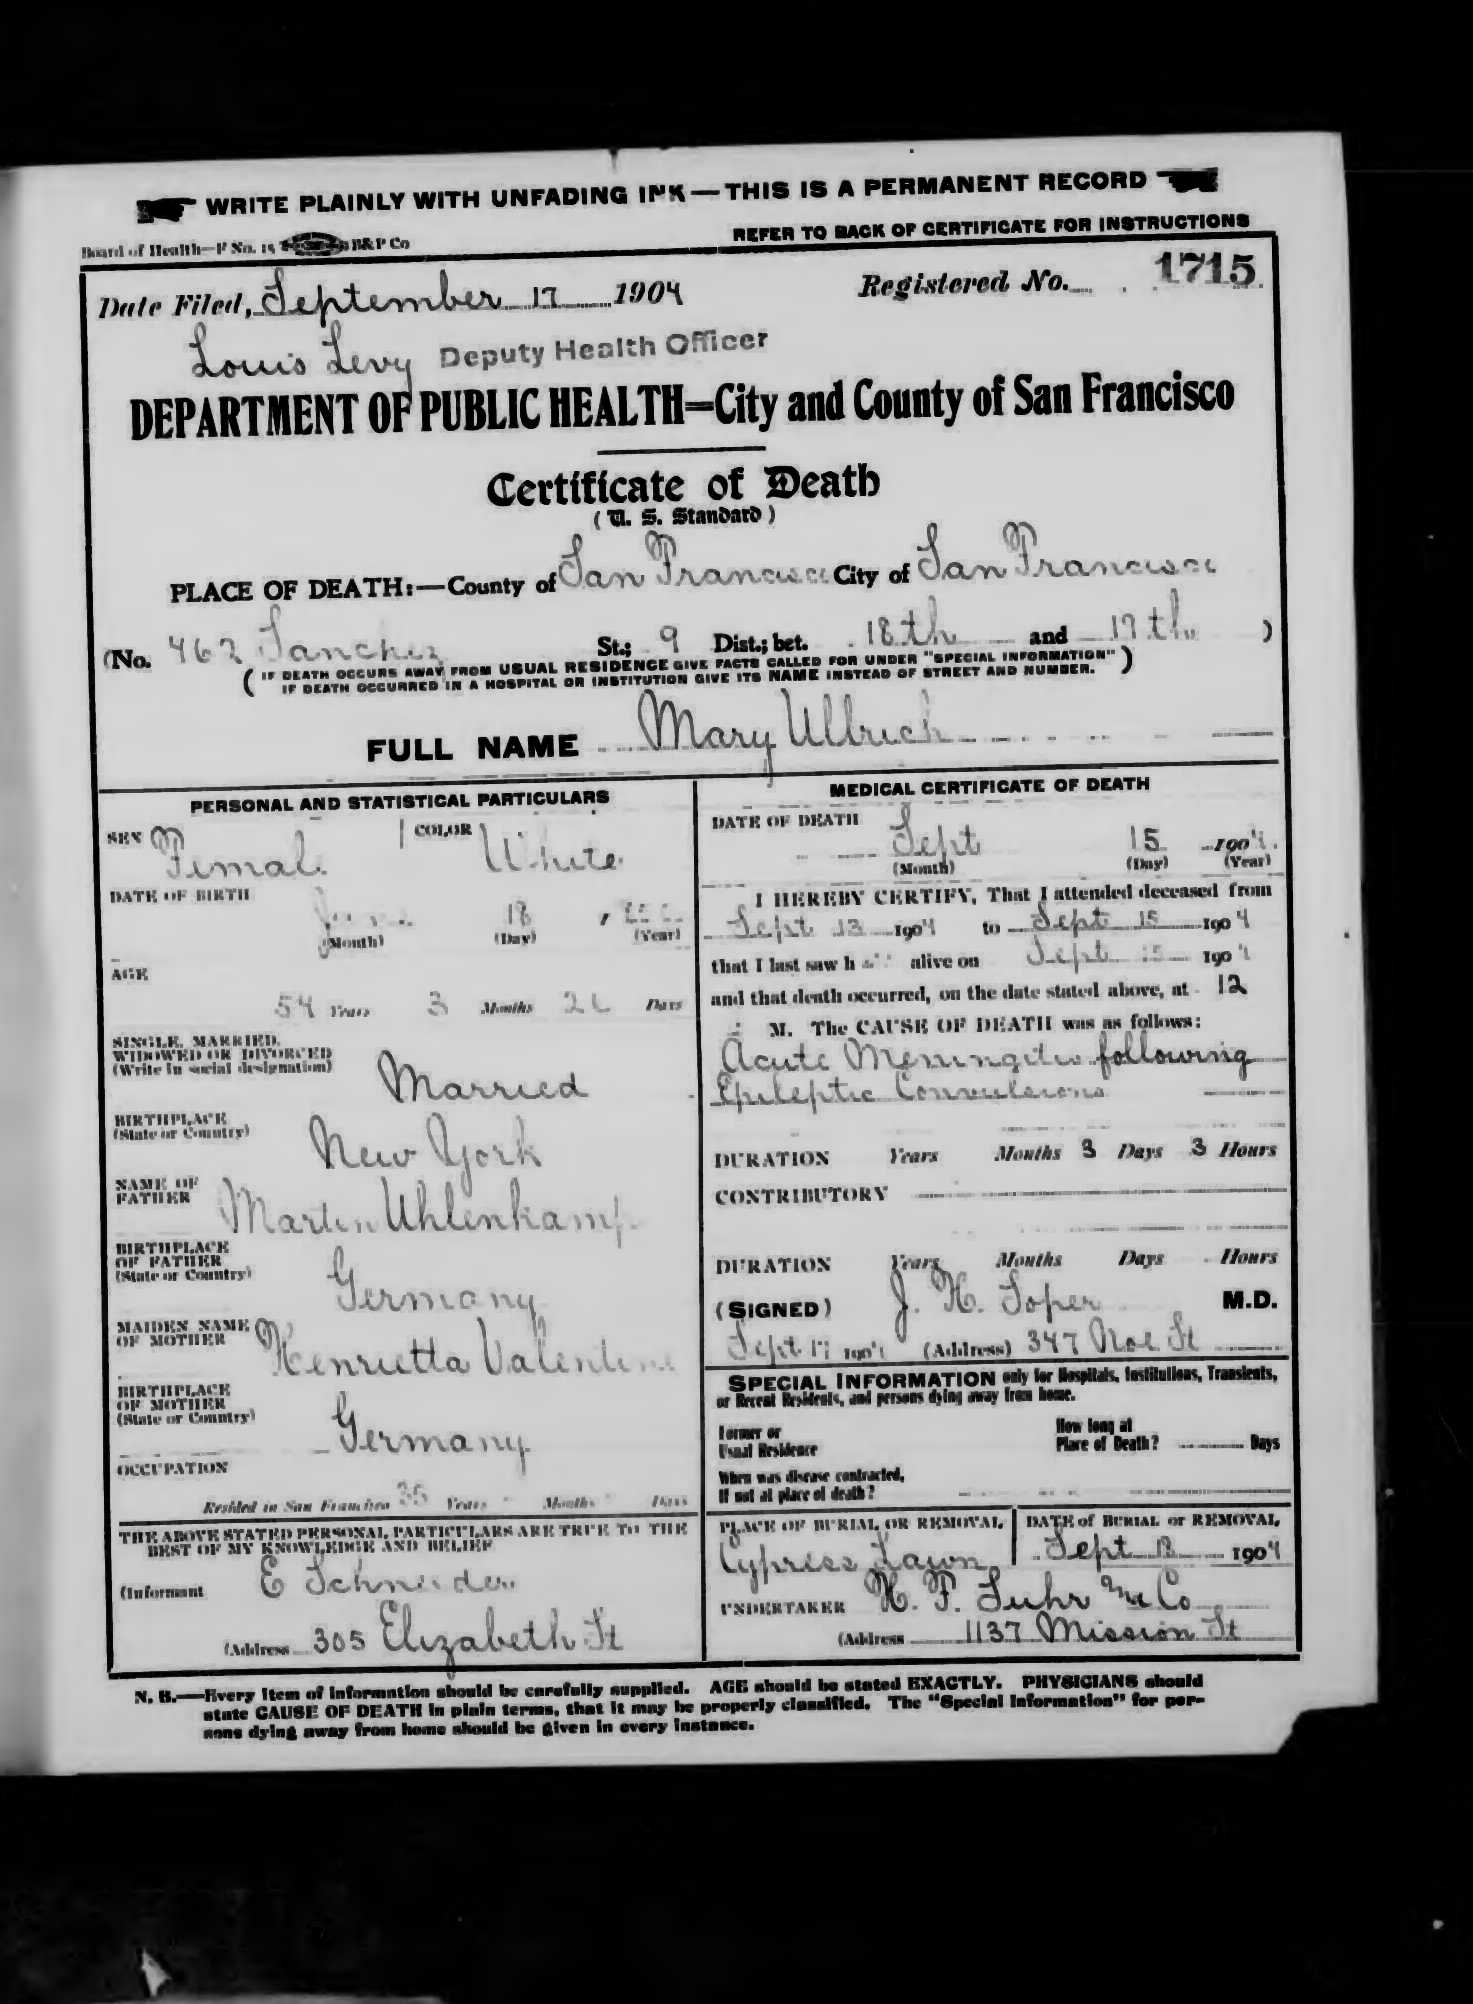 WRITE PLAINLY WITH UNFADING INK — THIS IS A PERMANENT RECORD
Board of Health—F No. 15 B&P Co
REFER TO BACK OF CERTIFICATE FOR INSTRUCTIONS
Date Filed, September 17 1904 Registered No. 1715
Louis Levy Deputy Health Officer
DEPARTMENT OF PUBLIC HEALTH—City and County of San Francisco
Certificate of Death
(U. S. Standard)
PLACE OF DEATH:—County of San Francisco City of San Francisco
(No. 462 Sanchez St.; 9 Dist.; bet. 18th and 19th )
( IF DEATH OCCURS AWAY FROM USUAL RESIDENCE GIVE FACTS CALLED FOR UNDER "SPECIAL INFORMATION" )
IF DEATH OCCURRED IN A HOSPITAL OR INSTITUTION GIVE ITS NAME INSTEAD OF STREET AND NUMBER.
FULL NAME Mary Ullrich
PERSONAL AND STATISTICAL PARTICULARS
SEX Female COLOR White
DATE OF BIRTH
18
(Month) (Day) (Year)
AGE
54 Years 3 Months Days
SINGLE, MARRIED,
WIDOWED OR DIVORCED
(Write in social designation)
Married
BIRTHPLACE
(State or Country)
New York
NAME OF
FATHER
Martin Uhlenkamp
BIRTHPLACE
OF FATHER
(State or Country)
Germany
MAIDEN NAME
OF MOTHER
Henrietta Valentine
BIRTHPLACE
OF MOTHER
(State or Country)
Germany
OCCUPATION
Resided in San Francisco 35 Years Months Days
THE ABOVE STATED PERSONAL PARTICULARS ARE TRUE TO THE
BEST OF MY KNOWLEDGE AND BELIEF
(Informant E Schneider
(Address 305 Elizabeth St
MEDICAL CERTIFICATE OF DEATH
DATE OF DEATH
Sept 15 1904
(Month) (Day) (Year)
I HEREBY CERTIFY, That I attended deceased from
Sept 13 1904 to Sept 15 1904
that I last saw h alive on Sept 15 1904
and that death occurred, on the date stated above, at 12
M. The CAUSE OF DEATH was as follows:
Acute Meningitis following
Epileptic Convulsions
DURATION Years Months 3 Days 3 Hours
CONTRIBUTORY
DURATION Years Months Days Hours
(SIGNED) J. H. Soper M.D.
Sept 17 1904 (Address) 347 Noe St
SPECIAL INFORMATION only for Hospitals, Institutions, Transients,
or Recent Residents, and persons dying away from home.
Former or
Usual Residence
How long at
Place of Death? Days
When was disease contracted,
If not at place of death?
PLACE OF BURIAL OR REMOVAL
Cypress Lawn
DATE of BURIAL or REMOVAL
Sept 18 1904
UNDERTAKER H. F. Suhr & Co
(Address 1137 Mission St
N. B.—Every item of information should be carefully supplied. AGE should be stated EXACTLY. PHYSICIANS should
state CAUSE OF DEATH in plain terms, that it may be properly classified. The "Special Information" for per-
sons dying away from home should be given in every instance.